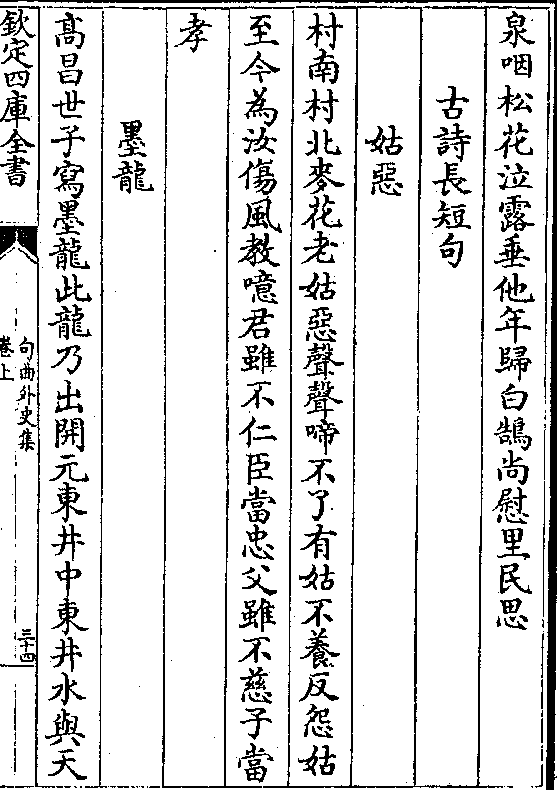 泉咽松花泣露垂他年歸白鵠尚慰里民思
古詩長短句
姑惡
村南村北麥花老姑惡聲聲啼不了有姑不養反怨姑
至今為汝傷風教噫君雖不仁臣當忠父雖不慈子當
孝
墨龍
髙昌世子寫墨龍此龍乃出開元東井中東井水與天
欽定四庫全書
句曲外史集
卷上
三十四